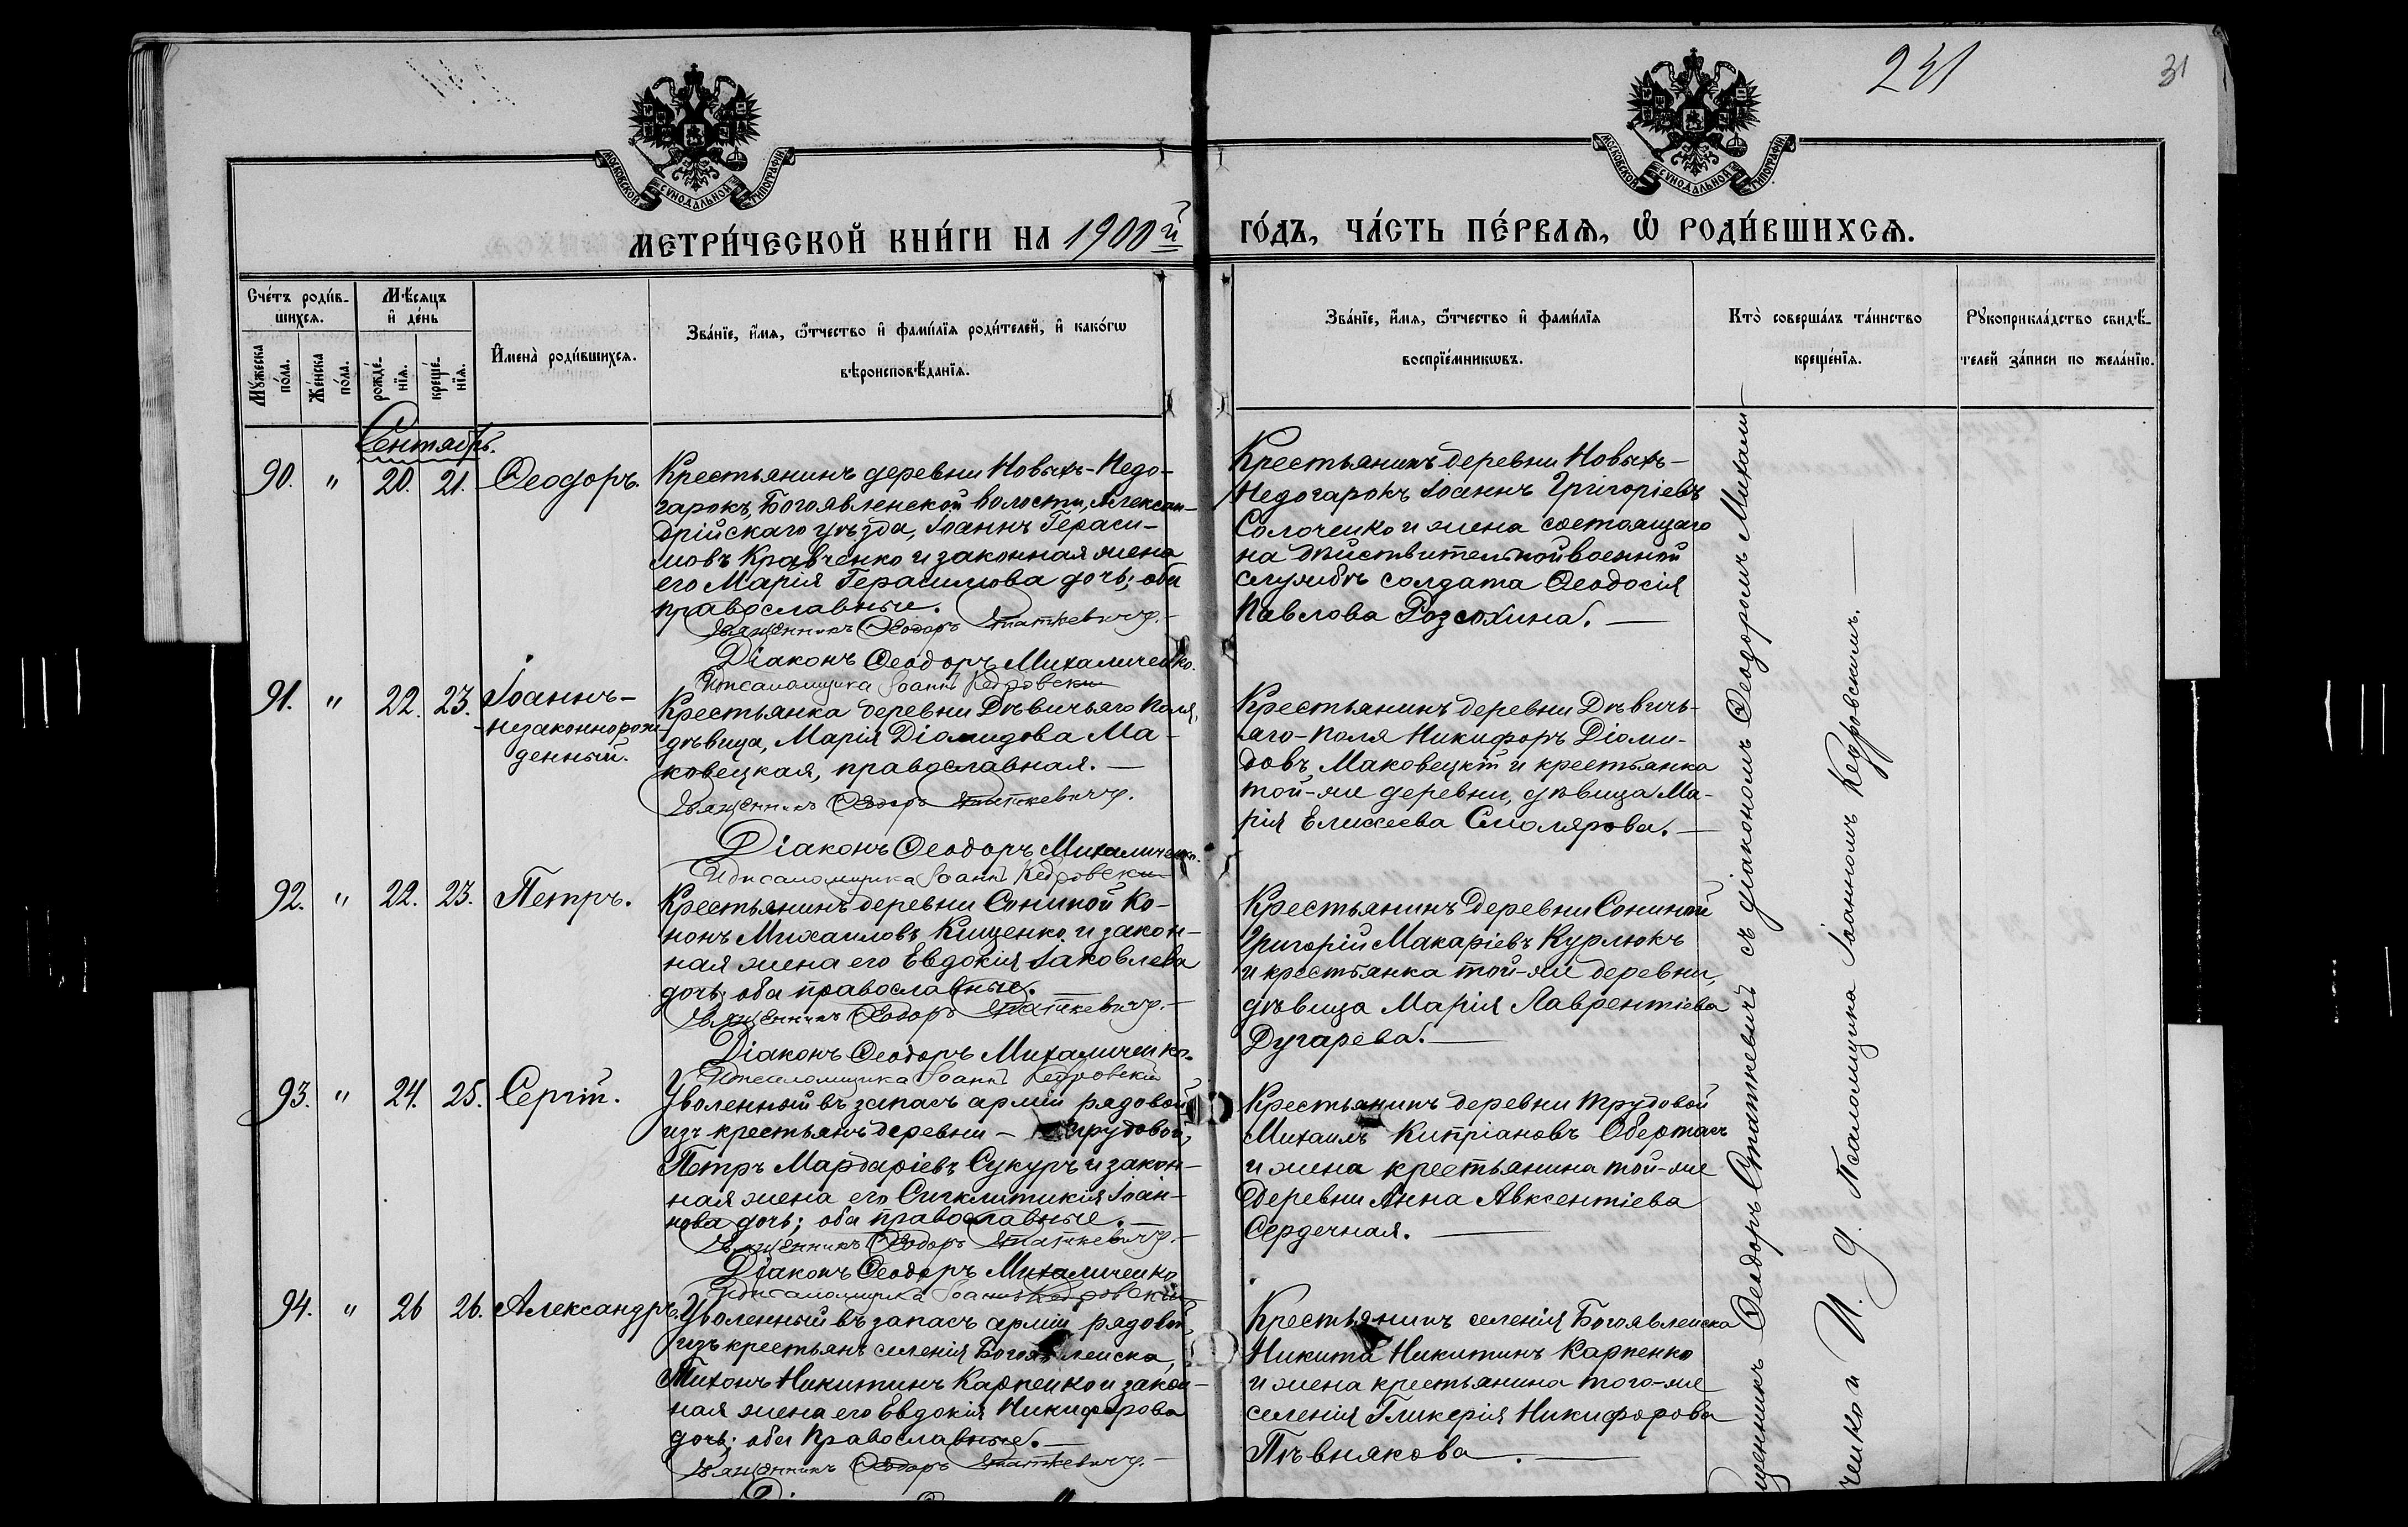 241
31
МОСКОВСКОЙ СѴНОДАЛЬНОЙ ТИПОГРАФІИ
МОСКОВСКОЙ СѴНОДАЛЬНОЙ ТИПОГРАФІИ
МЕТРИ́ЧЕСКОЙ КНИ́ГИ НА 1900й
ГО́ДЪ, ЧА́СТЬ ПЕ́РВАѦ, Ѽ РОДИ́ВШИХСѦ.
Сче́тъ роди́в-
шихся.
Мꙋ́жеска
по́ла.
Же́нска
по́ла.
Мѣ́сяцъ
и҆ де́нь
рожде́-
нїя.
креще́-
нїя.
И҆мена̀ роди́вшихся.
Зва́нїе, и҆́мя, ѻ҆́тчество и҆ фами́лїя роди́телей, и҆ како́гѡ
вѣроисповѣ́данїя.
Зва́нїе, и҆́мя, ѻ҆́тчество и҆ фами́лїя
воспрїе́мникѡвъ.
Кто̀ соверша́лъ та́инство
креще́нїя.
Рꙋкоприкла́дство свидѣ́-
телей за́писи по жела́нїю.
Сентябрь.
90. " 20. 21. Ѳеодоръ.
Крестьянинъ деревни Новыхъ-Недо-
гарокъ, Богоявленской волости, Алексан-
дрійскаго уѣзда, Іоаннъ Гераси-
мовъ Кравченко и законная жена
его Марія Герасимова дочь; оба
православные.
Священникъ Ѳеодоръ Статкевичъ.
Діаконъ Ѳеодоръ Михаличенко.
И д псаломщика Іоаннъ Кедровскій
Крестьянинъ деревни Новыхъ-
Недогарокъ Іоаннъ Григоріевъ
Солоченко и жена состоящаго
на дѣйствительной военной
службѣ солдата Ѳеодосія
Павлова Розсохина.
91. " 22. 23. Іоаннъ-
-незаконнорож-
денный.
Крестьянка деревни Дѣвичьяго Поля,
дѣвица, Марія Діомидова Ма-
ковецкая, православная.
Священникъ Ѳеодоръ Статкевичъ.
Діаконъ Ѳеодоръ Михаличенко.
И д псаломщика Іоаннъ Кедровскій
Крестьянинъ деревни Дѣвичь-
яго-поля Никифоръ Діоми-
довъ Маковецкій и крестьянка
той-же деревни, дѣвица Ма-
рія Елисеева Смолярова.
92. " 22. 23. Петръ.
Крестьянинъ деревни Сониной Ко-
нонъ Михаиловъ Клищенко и закон-
ная жена его Евдокія Іаковлева
дочь; оба православные.
Священникъ Ѳеодоръ Статкевичъ.
Діаконъ Ѳеодоръ Михаличенко.
И д псаломщика Іоаннъ Кедровскій
Крестьянинъ деревни Сониной
Григорій Макаріевъ Курлюкъ
и крестьянка той-же деревни,
дѣвица Марія Лаврентіева
Дугарева.
93. " 24. 25. Сергій.
Уволенный въ запасъ арміи рядовой
изъ крестьянъ деревни - Трудовой,
Петръ Мардаріевъ Сукуръ и закон-
ная жена его Сигклитикія Іоан-
нова дочь; оба православные.
Священникъ Ѳеодоръ Статкевичъ.
Діаконъ Ѳеодоръ Михаличенко
И д псаломщика Іоаннъ Кедровскій
Крестьянинъ деревни Трудовой
Михаилъ Кипріановъ Обертасъ
и жена крестьянина той-же
деревни Анна Авксентіева
Сердечная.
94. " 26 26. Александръ.
Уволенный въ запасъ арміи рядовой,
изъ крестьянъ селенія Богоявленска,
Тихонъ Никитинъ Карпенко и закон-
ная жена его Евдокія Никифорова
дочь; оба православные.
Священникъ Ѳеодоръ Статкевичъ.
Крестьянинъ селенія Богоявленска
Никита Никитинъ Карпенко
и жена крестьянина того-же
селенія Гликерія Никифорова
Пѣвнякова.
щенникъ Ѳеодоръ Статкевичъ съ діакономъ Ѳеодоромъ Михали-
ченко и И. д. Псаломщика Іоанномъ Кедровскимъ.